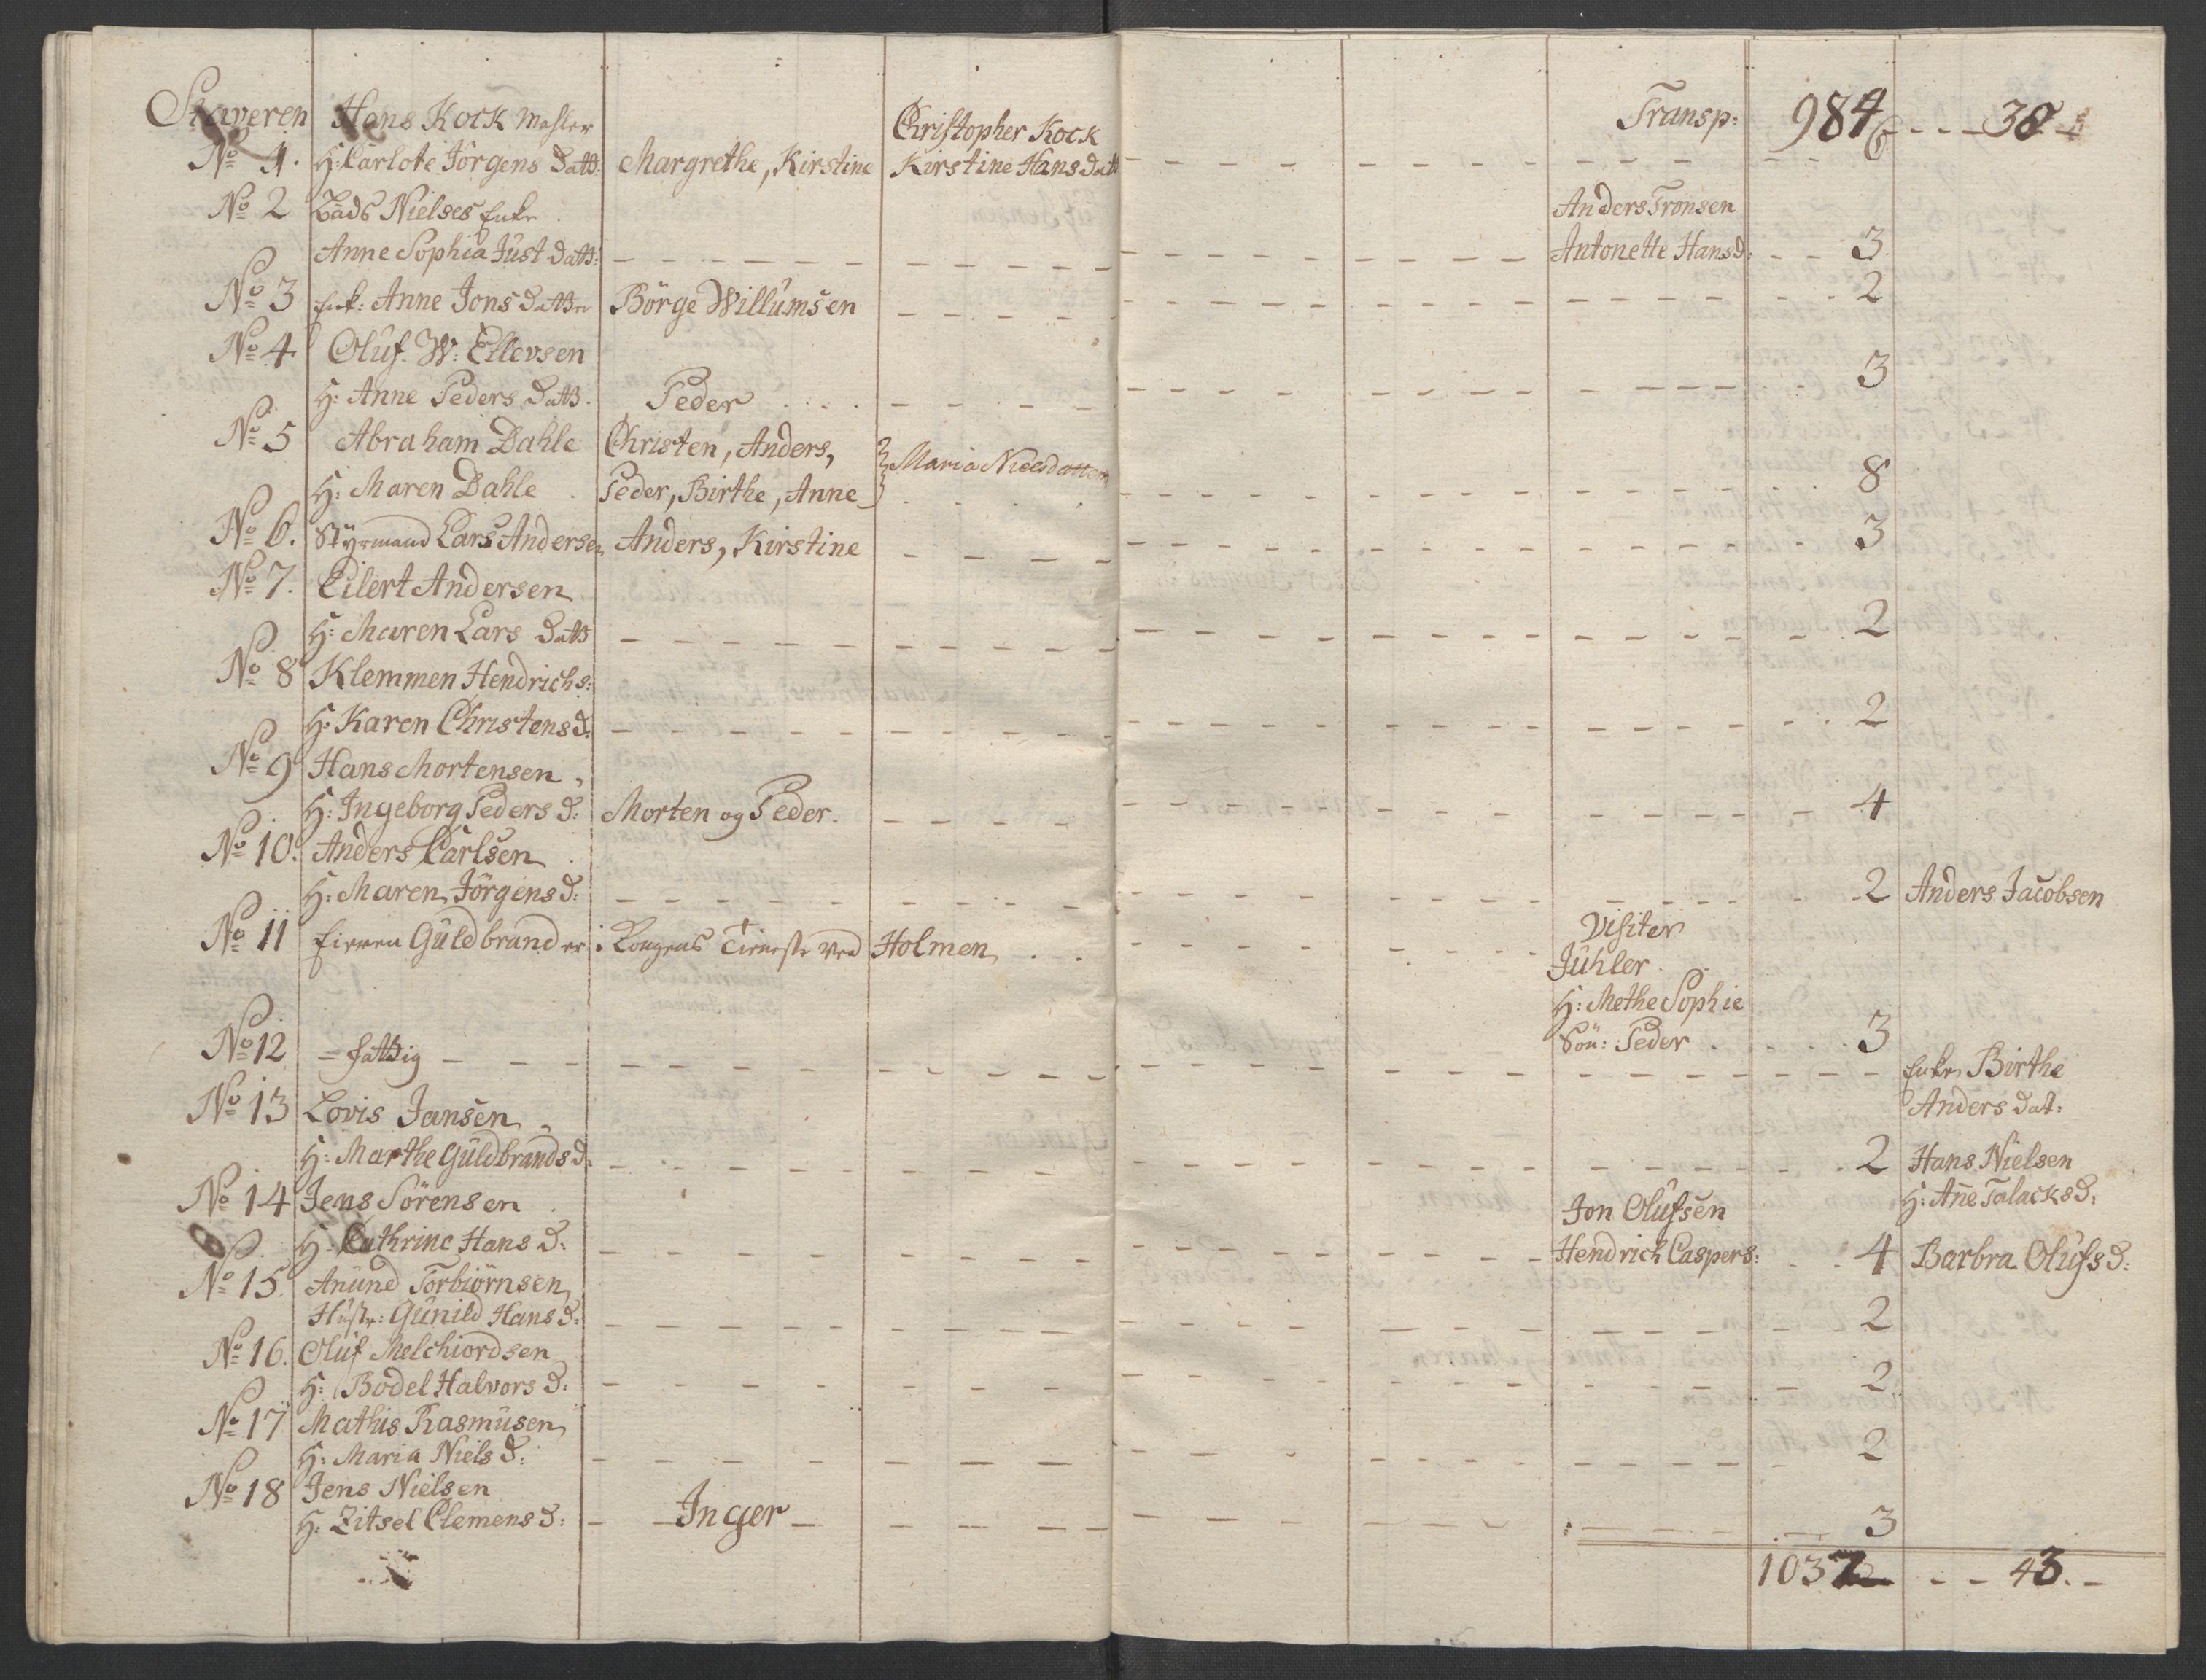 Staveren Hans Kock Mahler Christopher Kock Transp: 984 - - - 38
No 1. H: Carlote Jörgens Datt: Margrethe, Kirstine Kirstine Hans Datt 6
No 2 Mads Nielses Enke Anders Tronsen
Anne Sophia Just Datt: Antonette Hansd: 3
No 3 Enk: Anne Jons Datter Börge Willumsen 2
No 4 Oluf W: Ellevsen
H: Anne Peders Datt. Peder 3
No 5 Abraham Dahle Christen, Anders, Maria Nielsdatter
H: Maren Dahle Peder, Birthe, Anne 8
No 6. Styrmand Lars Andersen Anders, Kirstine 3
No 7. Eilert Andersen
H: Maren Lars Datt 2
No 8 Klemmen Hendrichs:
H: Karen Christens d: 2
No 9 Hans Mortensen
H: Ingeborg Peders d: Morten og Peder. 4
No 10. Anders Carlsen
H: Maren Jörgens d: 2 Anders Jacobsen
No 11 Eieren Güldbrand er i Kongens Tieneste ved Holmen Visiter
Jühler
H: Methe Sophie
Sön: Peder 3
No 12 - fattig - Enke Birthe
Anders dat:
No 13 Lovis Jansen
H: Marthe Güldbrands d: 2 Hans Nielsen
No 14 Jens Sörensen Jon Olufsen H: Ane Talacks d:
H: Cathrine Hans d: Hendrich Caspers: 4 Barbra Olufs d:
No 15. Anund Torbiörnsen
Hustr: Günild Hans d: 2
No 16. Oluf Melchiordsen
H: Bodel Halvors d: 2
No 17 Mathis Rasmusen
H: Maria Niels d: 2
No 18 Jens Nielsen
H: Zitsel Clemens d: Inger 3
1037 - - 43. -